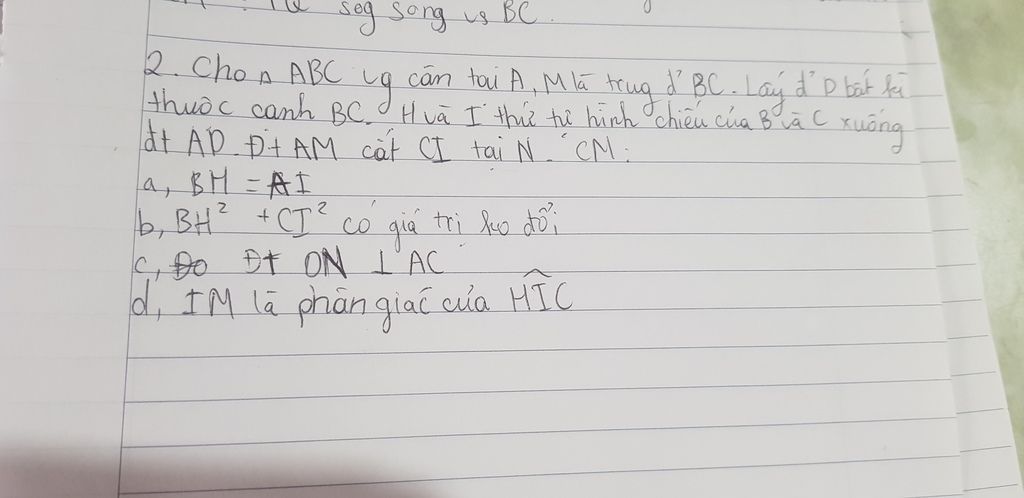 seg song vs BC.
2. Cho △ ABC vg cân tại A, M là trug đ' BC. Lấy đ' D bất kì
thuộc cạnh BC. H và I thứ tự hình chiếu của B và C xuống
đt AD. Đt AM cắt CI tại N. CM:
a, BH = AI
b, BH² + CI² có giá trị ko đổi
c, Đt DN ⊥ AC
d, IM là phân giác của HIC